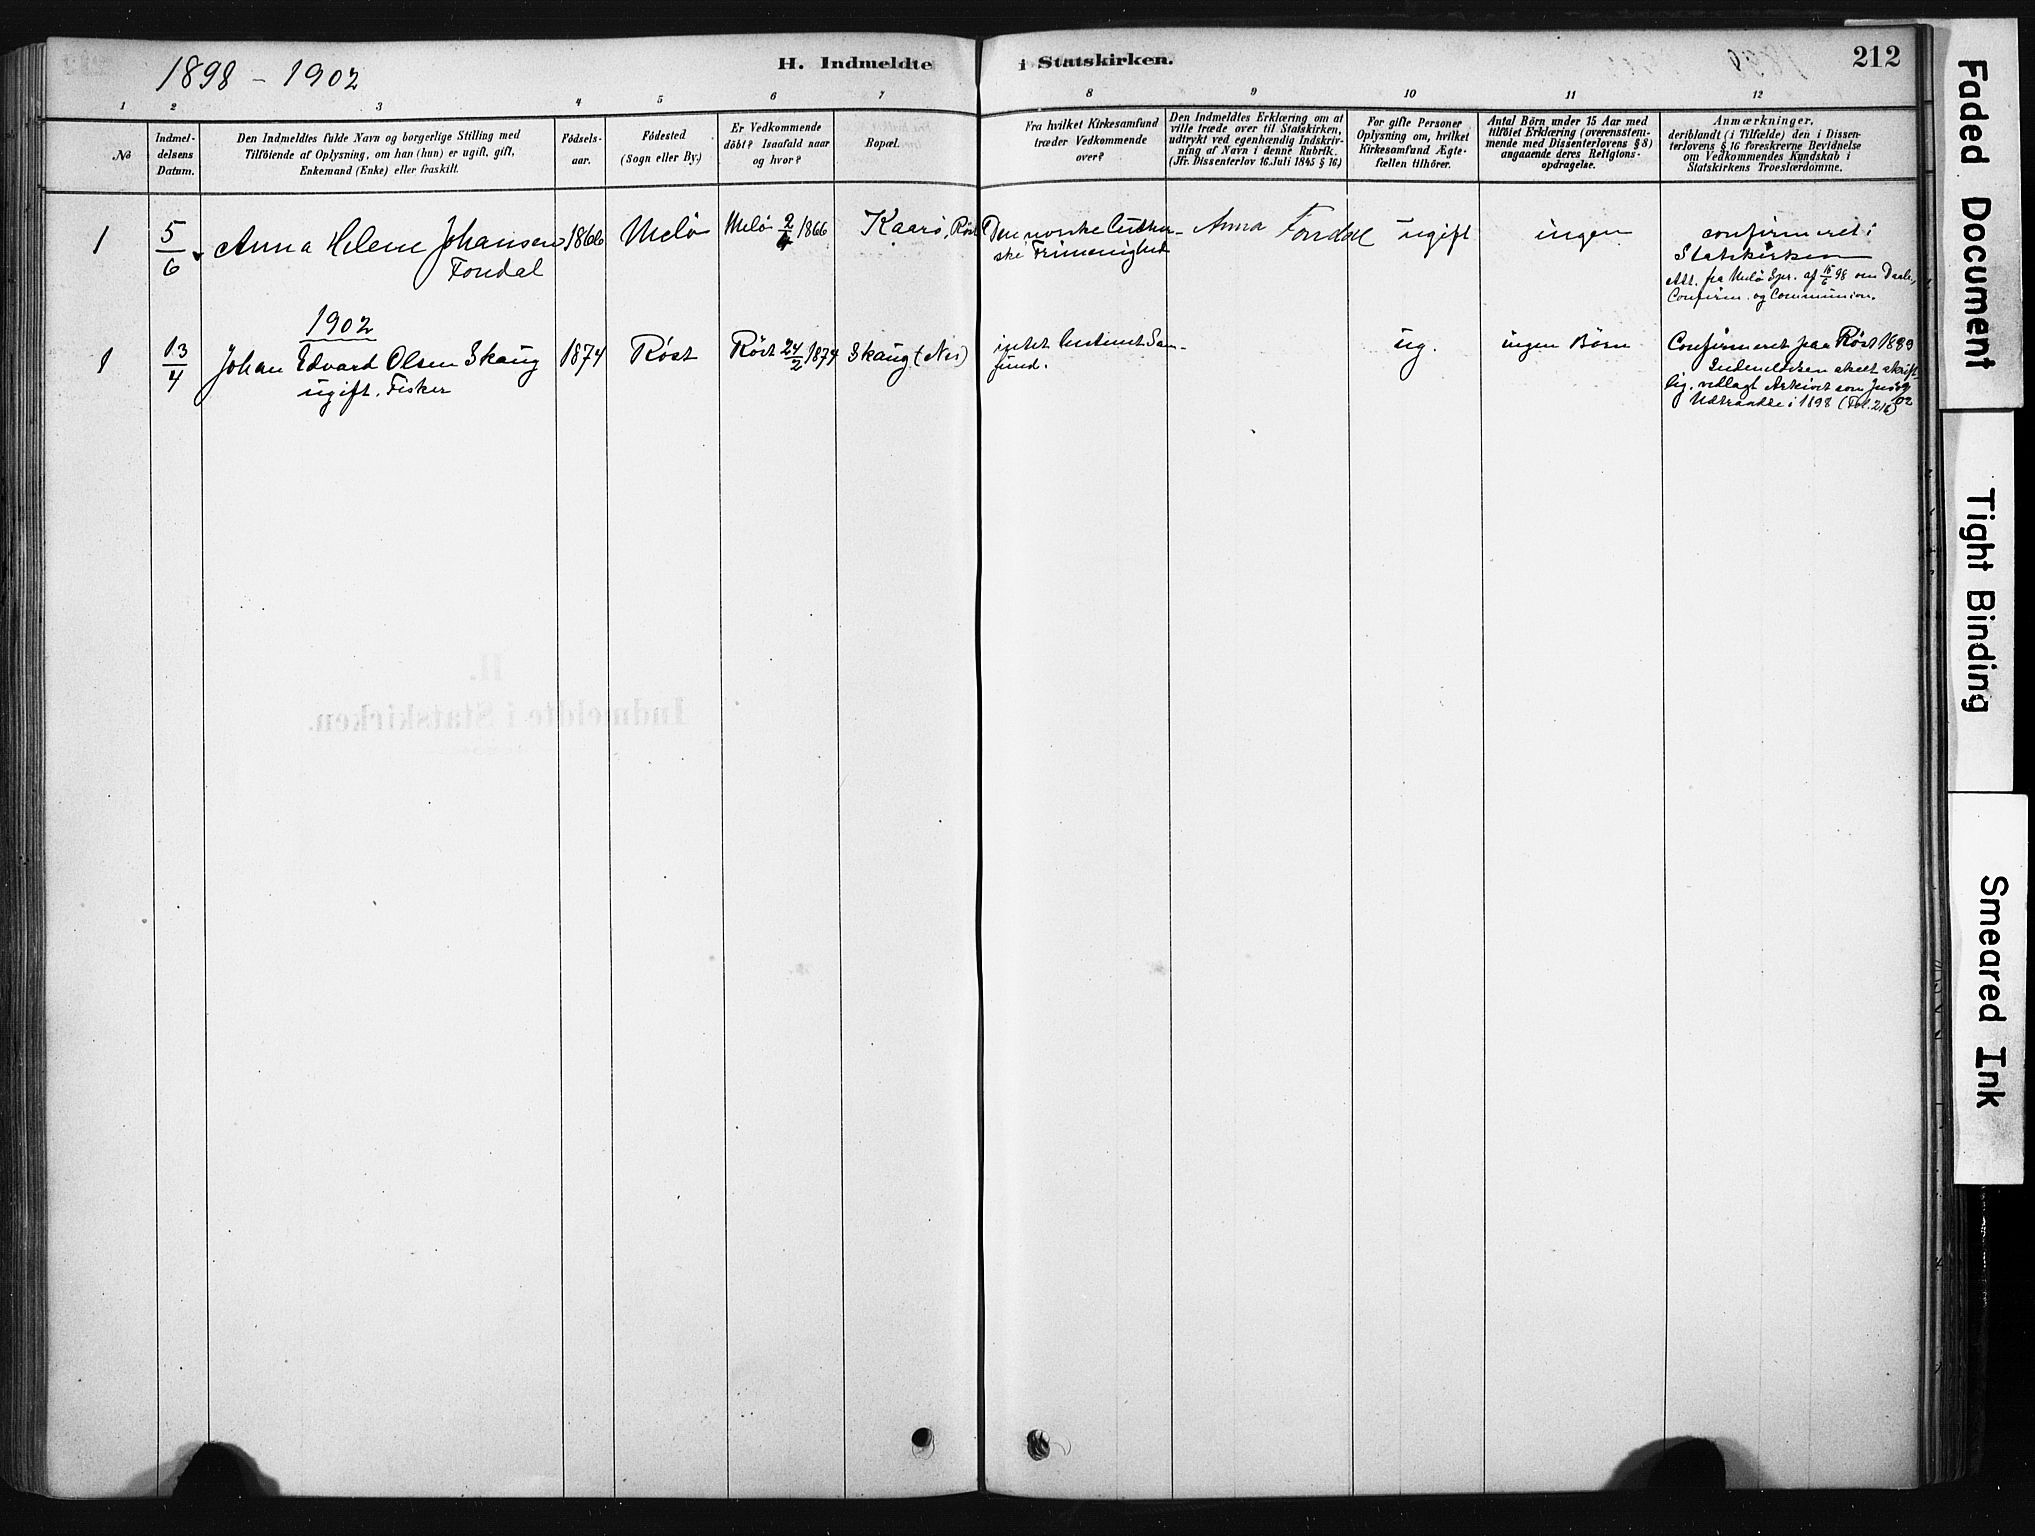 1898 - 1902
H. Indmeldte i Statskirken.
212
1 2 3 4 5 6 7 8 9 10 11 12
No
Indmel-
delsens
Datum.
Den Indmeldtes fulde Navn og borgerlige Stilling med
Tilföiende af Oplysning, om han (hun) er ugift, gift,
Enkemand (Enke) eller fraskilt.
Födsels-
aar.
Födested
(Sogn eller By.)
Er Vedkommende
döbt? Isaafald naar
og hvor?
Bopæl.
Fra hvilket Kirkesamfund
træder Vedkommende
over?
Den Indmeldtes Erklæring om at
ville træde over til Statskirken,
udtrykt ved egenhændig Indskriv-
ning af Navn i denne Rubrik.
(Jfr. Dissenterlov 16. Juli 1845 § 16)
For gifte Personer
Oplysning om, hvilket
Kirkesamfund Ægte-
fællen tilhörer.
Antal Börn under 15 Aar med
tilföiet Erklæring (overensstem-
mende med Dissenterlovens § 8)
angaaende deres Religions-
opdragelse.
Anmærkninger,
deriblandt (i Tilfælde) den i Dissen-
terlovens § 16 foreskrevne Bevidnelse
om Vedkommendes Kundskab i
Statskirkens Troeslærdomme.
1
5/6
Anna Helene Johansen
Fondal
1866
Melö
Melö 2/4 1866
Kaarö, Röst
Den norske luther-
ske Frimenighed
Anna Fondal
ugift
ingen
confirmeret i
Statskirken
Att. fra Melö Spr. af 15/6 98 om Daab,
Confirm. og Communion.
1902
1
13/4
Johan Edvard Olsen Skaug
ugift. Fisker
1874
Röst
Röst 24/2 1874
Skaug (Nes)
intet bestemt Sam-
fund.
ug.
ingen Börn
Confirmeret paa Röst 1889
Indmeldelsen skeet skrift-
lig. vedlagt Arkivet som
Udtraadte i 1898 (Fol. 216)
H.
Indmeldte i Statskirken.
Faded Document
Tight Binding
Smeared Ink